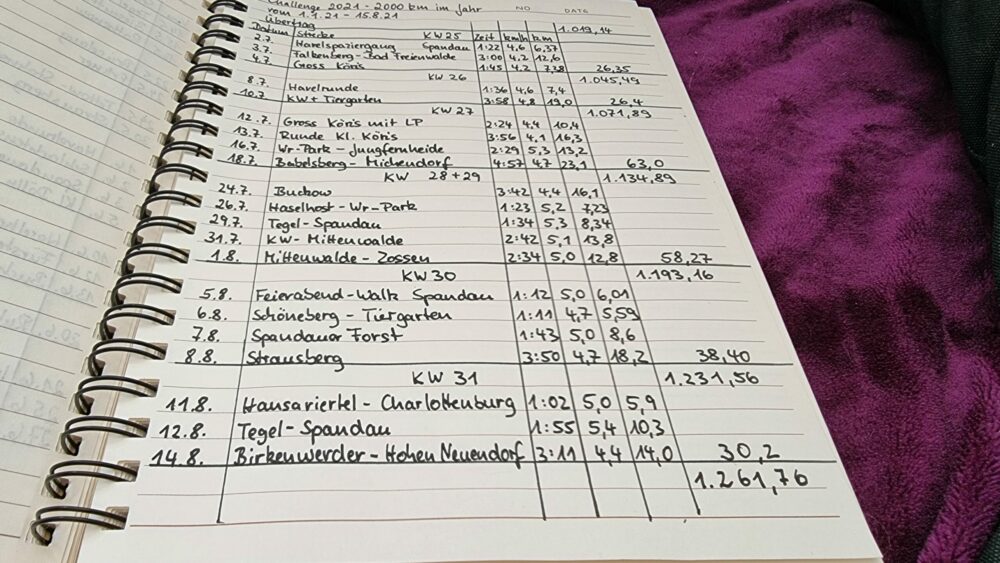 Challenge 2021 - 2000 km im Jahr NO DATE
vom 1.1.21 - 15.8.21
Übertrag 1.019,14
Datum Strecke KW 25 Zeit km/h km
2.7. Havelspaziergang Spandau 1:22 4,6 6,37
3.7. Falkenberg - Bad Freienwalde 3:00 4,2 12,6
4.7. Gross Köris 1:45 4,2 7,38 26,35
KW 26 1.045,49
8.7. Havelrunde 1:36 4,6 7,4
10.7. KW + Tiergarten 3:58 4,8 19,0 26,4
KW 27 1.071,89
12.7. Gross Köris mit LP 2:24 4,4 10,4
13.7. Runde Kl. Köris 3:56 4,1 16,3
16.7. Wr-Park - Jungfernheide 2:29 5,3 13,2
18.7. Babelsberg - Michendorf 4:57 4,7 23,1 63,0
KW 28 + 29 1.134,89
24.7. Buckow 3:42 4,4 16,1
26.7. Haselhost - Wr-Park 1:23 5,2 7,23
29.7. Tegel - Spandau 1:34 5,3 8,34
31.7. KW - Mittenwalde 2:42 5,1 13,8
1.8. Mittenwalde - Zossen 2:34 5,0 12,8 58,27
KW 30 1.193,16
5.8. Feierabend - Walk Spandau 1:12 5,0 6,01
6.8. Schöneberg - Tiergarten 1:11 4,7 5,59
7.8. Spandauer Forst 1:43 5,0 8,6
8.8. Strausberg 3:50 4,7 18,2 38,40
KW 31 1.231,56
11.8. Hansaviertel - Charlottenburg 1:02 5,0 5,9
12.8. Tegel - Spandau 1:55 5,4 10,3
14.8. Birkenwerder - Hohen Neuendorf 3:11 4,4 14,0 30,2
1.261,76